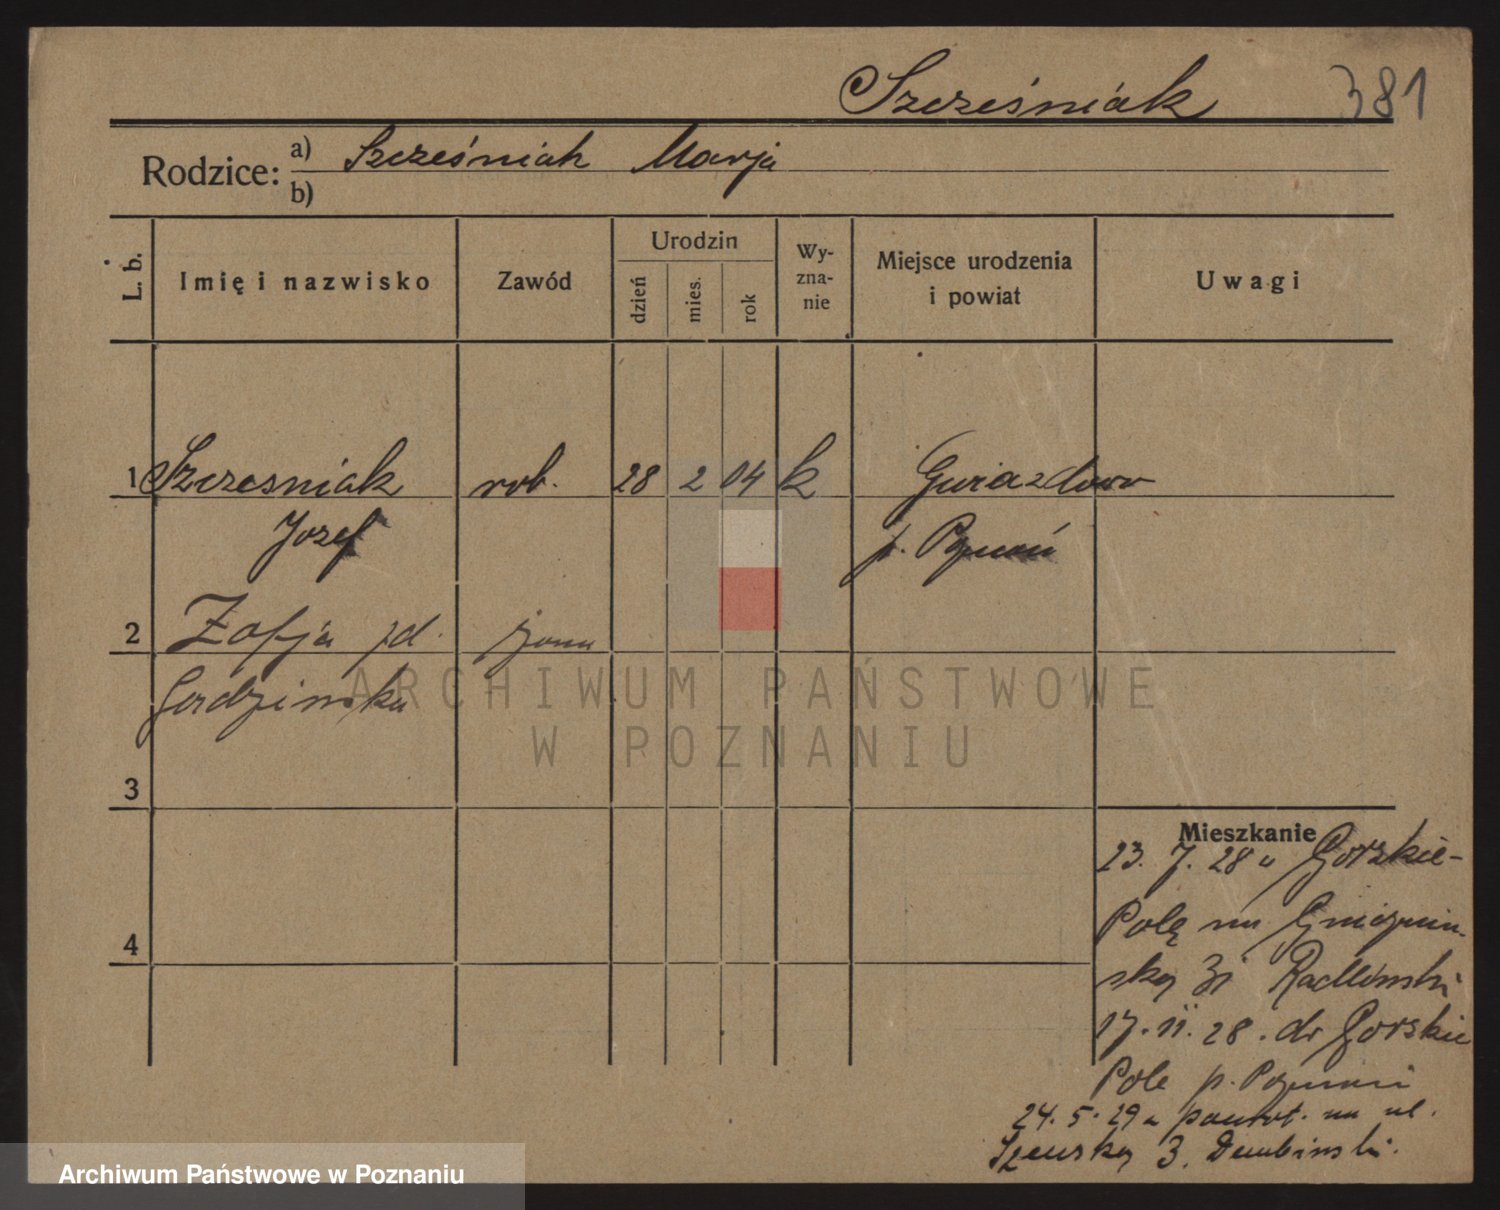 Szcześniak 381
Rodzice: a) Szcześniak Marja
b)
L. b. Imię i nazwisko Zawód Urodzin dzień mies. rok Wy-zna-nie Miejsce urodzenia i powiat Uwagi
1 Szczesniak rob. 28 2 04 k Gwiazdowo
Jozef p. Poznań
2 Zofja żona
3
4
Mieszkanie
23. 7. 28 Gorskie-
Pole na Gnieźnień-
ską Radliński
17. 11. 28. do Gorskie
Pole p. Poznań
24. 5. 29 powrot. na ul.
Szewską 3. Dembinski.
ARCHIWUM PAŃSTWOWE
W POZNANIU
Archiwum Państwowe w Poznaniu